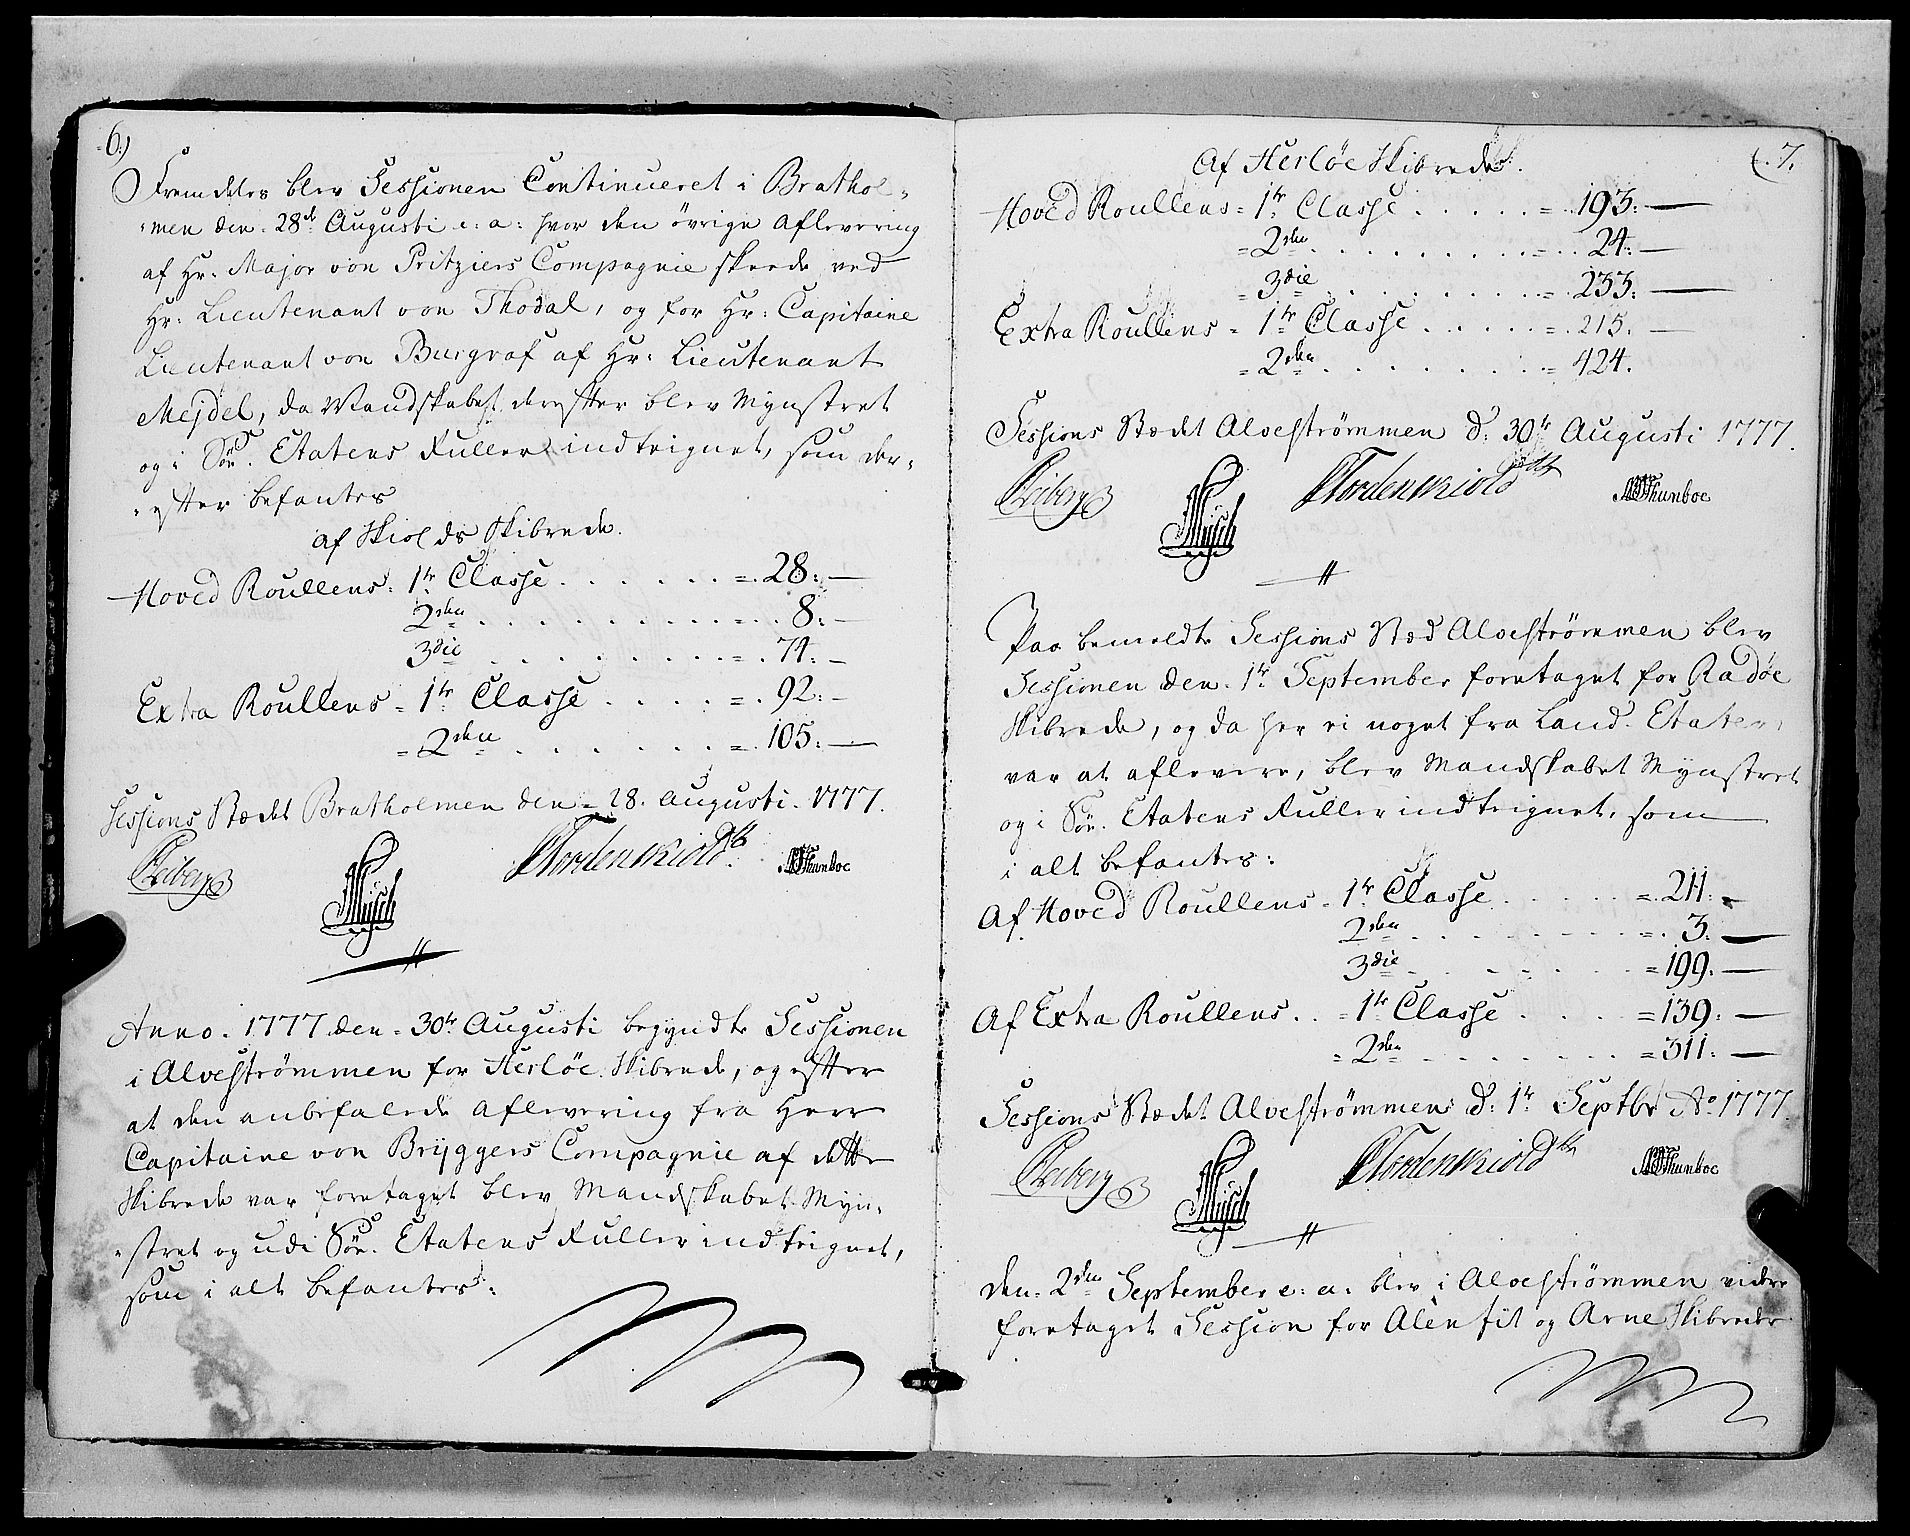 6.)
Fremdeles blev Sessionen Continueret i Brathol-
men den 28de Augusti e: a: hvor den övrige Aflevering
af Hr: Major von Pritziers Compagnie skeede ved
Hr: Lieutenant von Thodal, og for Hr: Capitaine
Lieutenant von Burgraf af Hr: Lieutenant
Mejdel, da Mandskabet derefter blev Mynstret
og i Söe Etatens Ruller indteignet, som der-
efter befantes
af Skiolds Skibrede.
Hoved Roullens 1te Classe . . . . . = 28: —
2den . . . . . . . . = 8: —
3die . . . . . . . . = 74: —
Extra Roullens = 1te Classe . . . . = 92: —
= 2den . . . . . . = 105: —
Sessions Stædet Bratholmen den 28. Augusti 1777.
Fleiberg Mÿsch Tordenskiold NThunboe
Anno 1777 den 30te Augusti begyndte Sessionen
i Alveströmmen for Herlöe Skibrede, og efter
at den anbefalede Aflevering fra Herr
Capitaine von Brÿggers Compagnie af dette
Skibrede var foretaget blev Mandskabet Myn-
stret og udi Söe Etatens Ruller indteignet,
som i alt befantes:
7.
Af Herlöe Skibrede.
Hoved Roullens = 1te Classe . . . . . = 193: —
= 2den . . . . . . . . = 24: —
= 3die . . . . . . . . = 233: —
Extra Roullens = 1te Classe . . . . . = 215. —
= 2den . . . . . . . . = 424.
Sessions Stædet Alveströmmen d: 30te Augusti 1777.
Fleiberg Mÿsch Tordenskiold NThunboe
Paa bemeldte Sessions Stæd Alveströmmen blev
Sessionen den 1te September foretaget for Radöe
Skibrede, og da her ei noget fra Land Etaten
var at aflevere, blev Mandskabet Mynstret
og i Söe Etatens Ruller indteignet, som
i alt befantes:
Af Hoved Roullens 1te Classe . . . . . = 211: —
2den . . . . . . . . = 3: —
3die . . . . . . . . = 199: —
Af Extra Roullens . . = 1te Classe . . . . = 139: —
= 2den . . . . . . . = 311: —
Sessions Stædet Alveströmmen d: 1te Septbr Ao 1777.
Fleiberg Mÿsch Tordenskiold NThunboe
Den 2den September e: a: blev i Alveströmmen videre
foretaget Session for Alenfit og Arne Skibreder